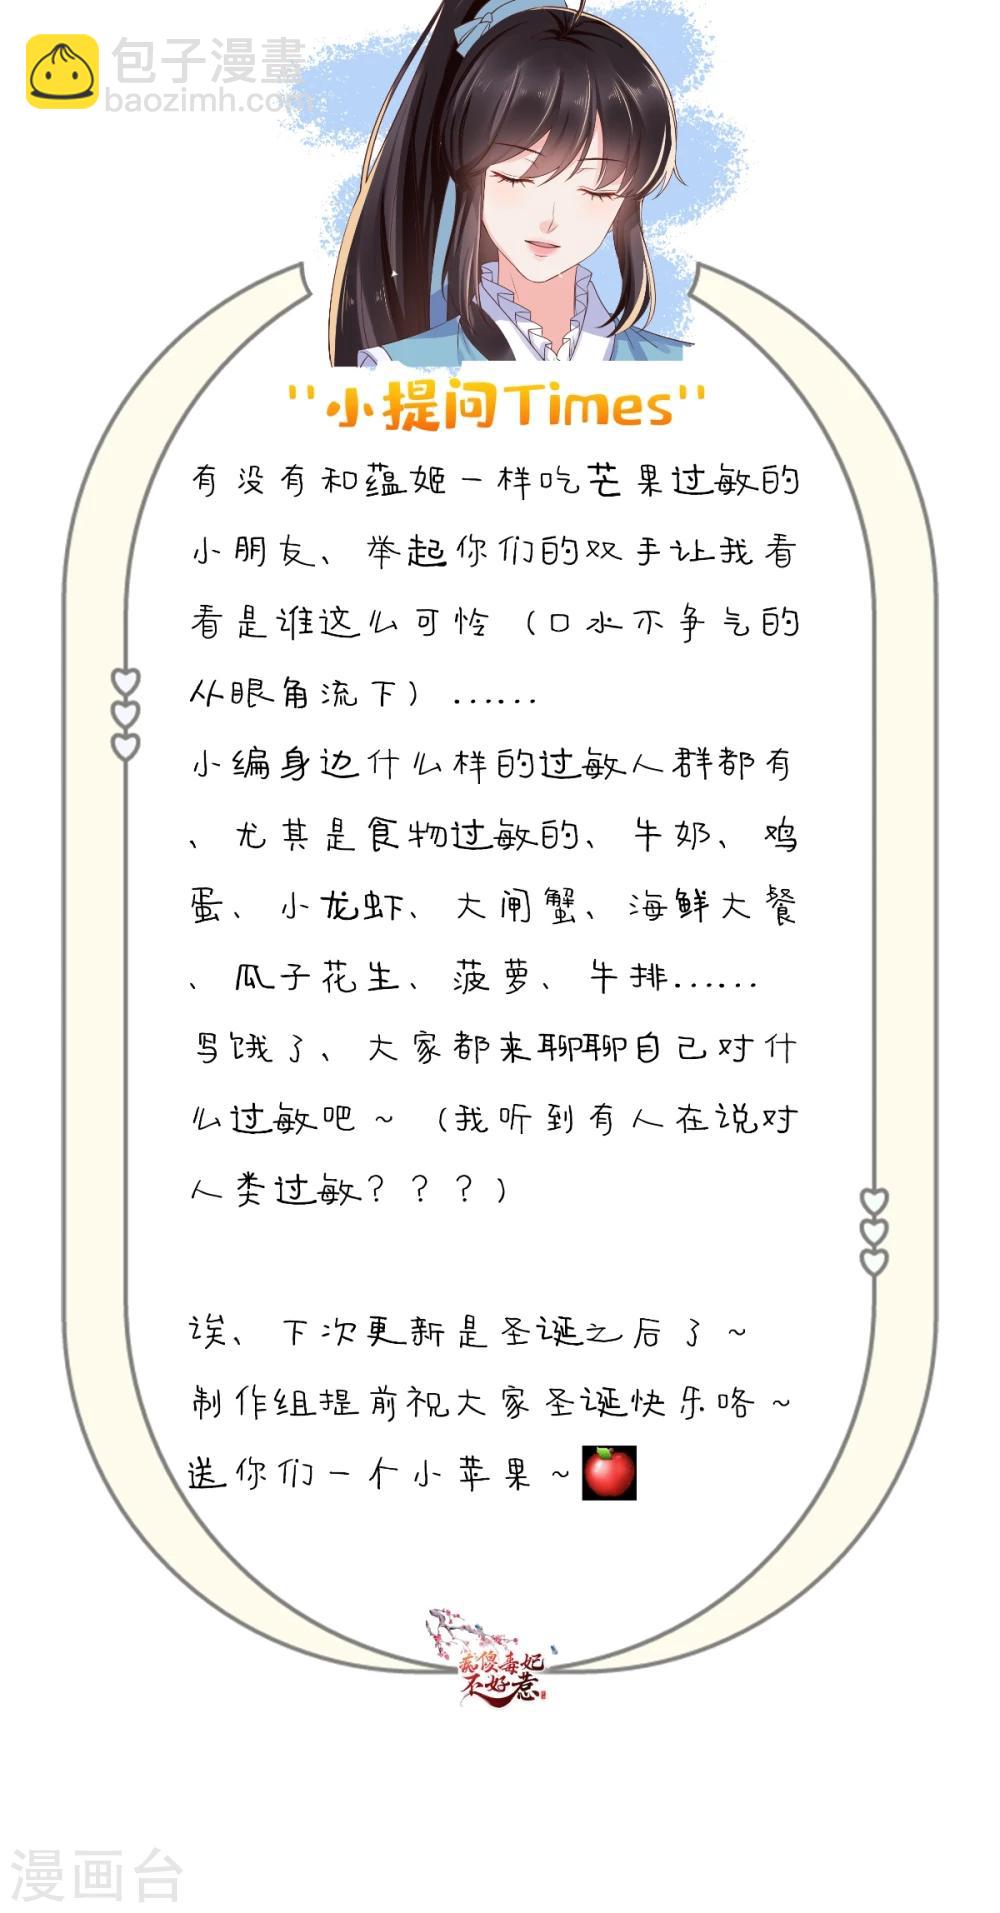 包子漫畫
baozimh.com
"小提问Times"
有没有和蕴姬一样吃芒果过敏的
小朋友、举起你们的双手让我看
看是谁这么可怜（口水不争气的
从眼角流下）......
小编身边什么样的过敏人群都有
、尤其是食物过敏的、牛奶、鸡
蛋、小龙虾、大闸蟹、海鲜大餐
、瓜子花生、菠萝、牛排......
写饿了、大家都来聊聊自己对什
么过敏吧~（我听到有人在说对
人类过敏？？？）
诶、下次更新是圣诞之后了~
制作组提前祝大家圣诞快乐咯~
送你们一个小苹果~
痴傻毒妃
不好惹
漫画台